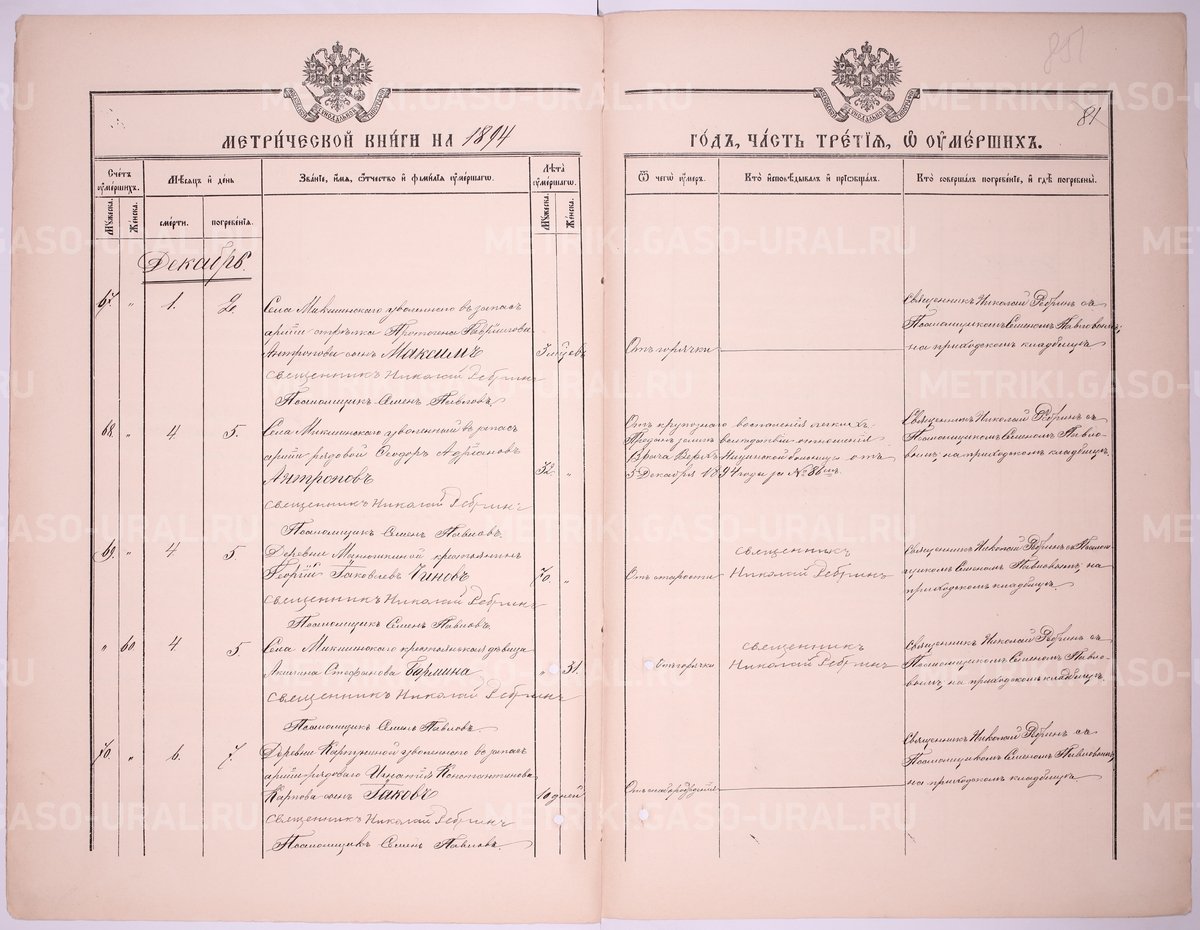 851
81
МЕТРИЧЕСКОЙ КНИГИ НА 1894
ГОДЪ, ЧАСТЬ ТРЕТІЯ, Ѡ ОУМЕРШИХЪ.
Счетъ оумершихъ.
Мѣсяцъ и день
Званіе, имя, ѿчество и фамилія оумершаго.
Лѣта оумершаго.
Ѿ чего оумеръ.
Кто исповѣдывалъ и пріобщалъ.
Кто совершалъ погребеніе, и гдѣ погребены.
Мужеска.
Женска.
смерти.
погребенія.
Мужеска.
Женска.
Декабрь.
67. " 1. 2.
Села Микшинскаго уволеннаго въ запасъ
арміи стрѣлка Протогена Гаврилова
Антропова сынъ Максимъ
священникъ Николай Ребринъ
Псаломщикъ Семенъ Павловъ.
Отъ горячки
Священникъ Николай Ребринъ съ
Псаломщикомъ Семеномъ Павловымъ;
на приходскомъ кладбищѣ
68. " 4 5.
Села Микшинскаго уволенный въ запасъ
арміи рядовой Ѳеодоръ Адріановъ
Антроповъ
32. "
священникъ Николай Ребринъ
Псаломщикъ Семенъ Павловъ.
Отъ крупознаго воспаленія легкихъ.
Преданъ землѣ вслѣдствіе отношенія
Врача Верхъ- волости отъ
5 Декабря 1894 года за №
Священникъ Николай Ребринъ съ
Псаломщикомъ Семеномъ Павло-
вымъ, на приходскомъ кладбищѣ.
69. " 4 5
Деревни крестьянинъ
Георгій Іаковлевъ Чиновъ
70. "
священникъ Николай Ребринъ
Псаломщикъ Семенъ Павловъ.
Отъ старости
священникъ
Николай Ребринъ
Священникъ Николай Ребринъ съ Псалом-
щикомъ Семеномъ Павловымъ, на
приходскомъ кладбищѣ.
" 60. 4 5
Села Микшинскаго крестьянская дѣвица
Стефанова
" 31.
священникъ Николай Ребринъ
Псаломщикъ Семенъ Павловъ
Отъ горячки
священникъ
Николай Ребринъ
Священникъ Николай Ребринъ съ
Псаломщикомъ Семеномъ Павло-
вымъ, на приходскомъ кладбищѣ.
70. " 6. 7.
Деревни уволеннаго въ запасъ
арміи рядоваго Игнатія Константинова
Карпова сынъ Іаковъ
10 дней
священникъ Николай Ребринъ
Псаломщикъ Семенъ Павловъ.
Отъ
Священникъ Николай Ребринъ съ
Псаломщикомъ Семеномъ Павловымъ,
на приходскомъ кладбищѣ
METRIKI.GASO-URAL.RU